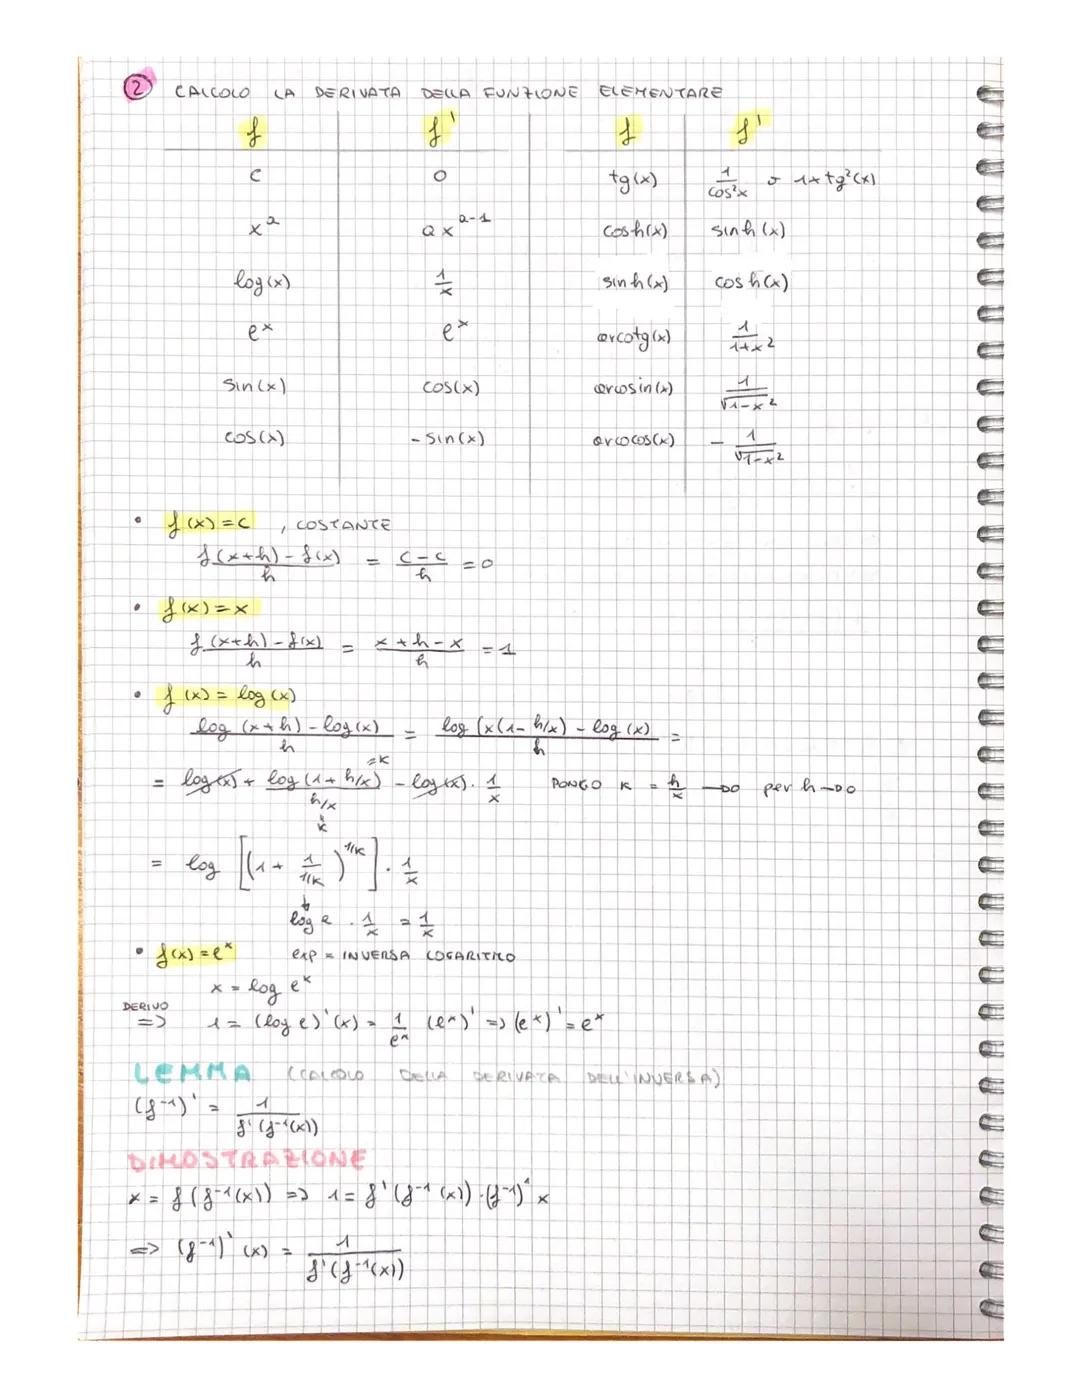 2 CALCOLO LA DERIVATA DELLA FUNZIONE ELEMENTARE
f f' f f'
c 0 tg(x) 1/cos²x o 1+tg²(x)
x^a ax^(a-1) cosh(x) sinh(x)
log(x) 1/x sinh(x) cosh(x)
e^x e^x arcotg(x) 1/(1+x²)
sin(x) cos(x) arcosin(x) 1/√(1-x²)
cos(x) -sin(x) arcocos(x) -1/√(1-x²)
• f(x)=c, COSTANTE
(f(x+h)-f(x))/h = (c-c)/h = 0
• f(x)=x
(f(x+h)-f(x))/h = (x+h-x)/h = 1
• f(x)=log(x)
(log(x+h)-log(x))/h = (log(x(1-h/x)-log(x))/h =
=K
= (log(x)+log(1+h/x)-log(x))/(h/x) · 1/x PONGO K = h/x →0 per h→0
K
= log[(1+1/(1/K))^(1/K)] · 1/x
log e · 1/x = 1/x
• f(x)=e^x exp = INVERSA LOGARITMO
x = log e^x
DERIVO
=> 1=(log e)'(x)= 1/e^x (e^x)' => (e^x)'=e^x
LEMMA (CALCOLO DELLA DERIVATA DELL'INVERSA)
(f^-1)' = 1/(f'(f^-1(x)))
DIMOSTRAZIONE
x = f(f^-1(x)) => 1=f'(f^-1(x))·(f^-1)'x
=> (f^-1)'(x) = 1/(f'(f^-1(x)))